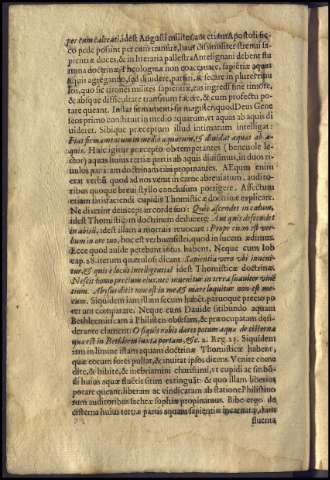 per eum castrati, idest Augusti milites, & etiam Apostoli sic
co pede possint per eum transire, haut dissimiliter strenui sa-
pientiæ duces, & in literaria palæstra Antesignani debent flu
mina doctrinæ Theologicæ non coarctare, sapientiæ aquas
in segregando, sed diuidere, partiri, & secare in plures riuu-
los, quo sic tirones milites sapientiæ, eas ingredi sine timore,
& absque difficultate transitum facere, & cum profectu po-
tare queant. In hac firmamenti sic magister, quod Deus Gene
seos primo constituit in medio aquarum, vt aquas ab aquis di
uideret. Sibique præceptum illud intimatum intelligat:
Fiat firmamentum in medio aquarum, & diuidat aquas ab a-
quis. Huic igitur præcepto obtemperantes (beneuole le-
ctor) aquas huius tertiæ partis ab aquis diuisimus, in duos ri-
uulos partiam doctrinam tibi propinantes. AEquum enim
erat verbū quod ad nos venit in carne abbreuiatum, audito-
ribus quoque breui stylo conclusum porrigere. Affectum
etiam satisfaciendi cupidis Thomisticæ doctrinæ explicare.
Ne dixerint deinceps in corde suo: Quis ascendet in cælum,
idest Thomisticam doctrinam deducere. Aut quis descendet
in abissū, idest illam a mortuis reuocare: Prope enim est ver-
bum in ore tuo, hoc est verbum istud, quod in succum redimus.
Ecce quod auide petebant istius, habent. Neque cum Iob
cap. 28. iterum querulosi dicant. Sapientia vero vbi inueni-
tur, & quis est locus intelligentiæ? idest Thomisticæ doctrinæ.
Nescit homo precium eius, nec inuenitur in terra suauiter viuē
tium. Abyssus dicit non est in me, & mare loquitur non est me-
cum. Siquidem iam illam secum habēt, paruoque precio po-
terunt comparare. Neque cum Dauide sitibundo aquam
Bethleemiticam a Philisteis obsessam, & præoccupatam desi-
derante clament: O si quis mihi daret potum aquæ de cisterna
quæ est in Bethleem iuxta portam, &c. 2. Reg. 23. Siquidem
iam in limine istam aquam doctrinæ Thomisticæ habent,
quæ eorum fores pultat, & inuitat ipsos dicens. Venite come
dite, & bibite, & inebriamini charissimi, vt cupidi ac sitibū-
di huius aquæ flaccis sitim extinguāt: & quo illam liberius
potare queant, liberam ac vindicatam ab statione Philistino
rum auditoribus luchtæ sophiæ propinamus. Bibe ergo de
cisterna huius tertiæ partis aquam sapientiæ increatæ, sunt
fluenta